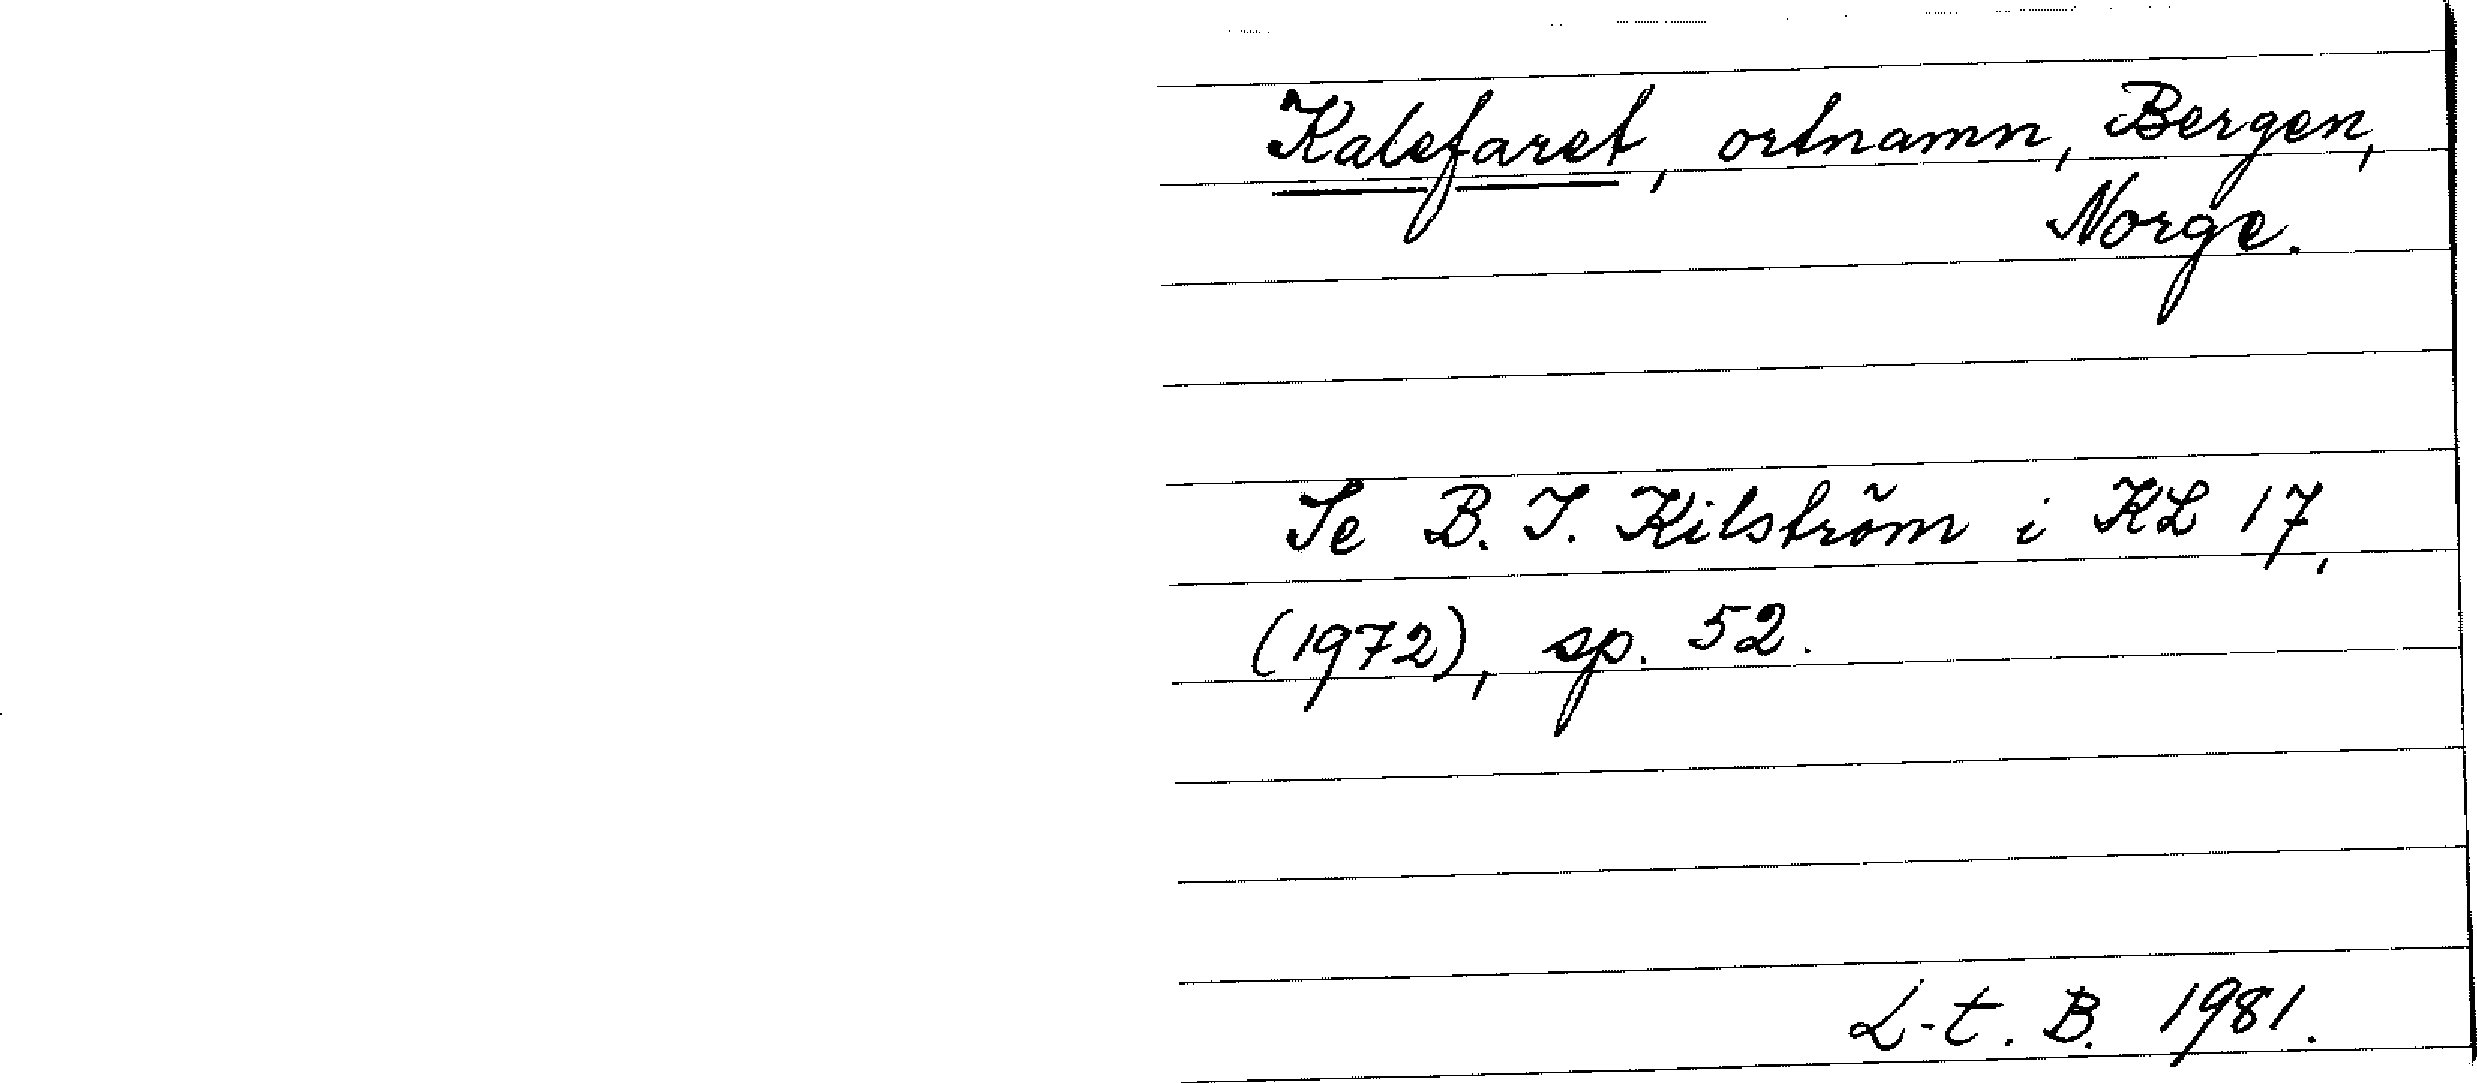 Kalefaret, ortnamn, Bergen,
Norge.
Se B. I. Kilström i KL 17,
(1972), sp. 52.
L-t. B. 1981.